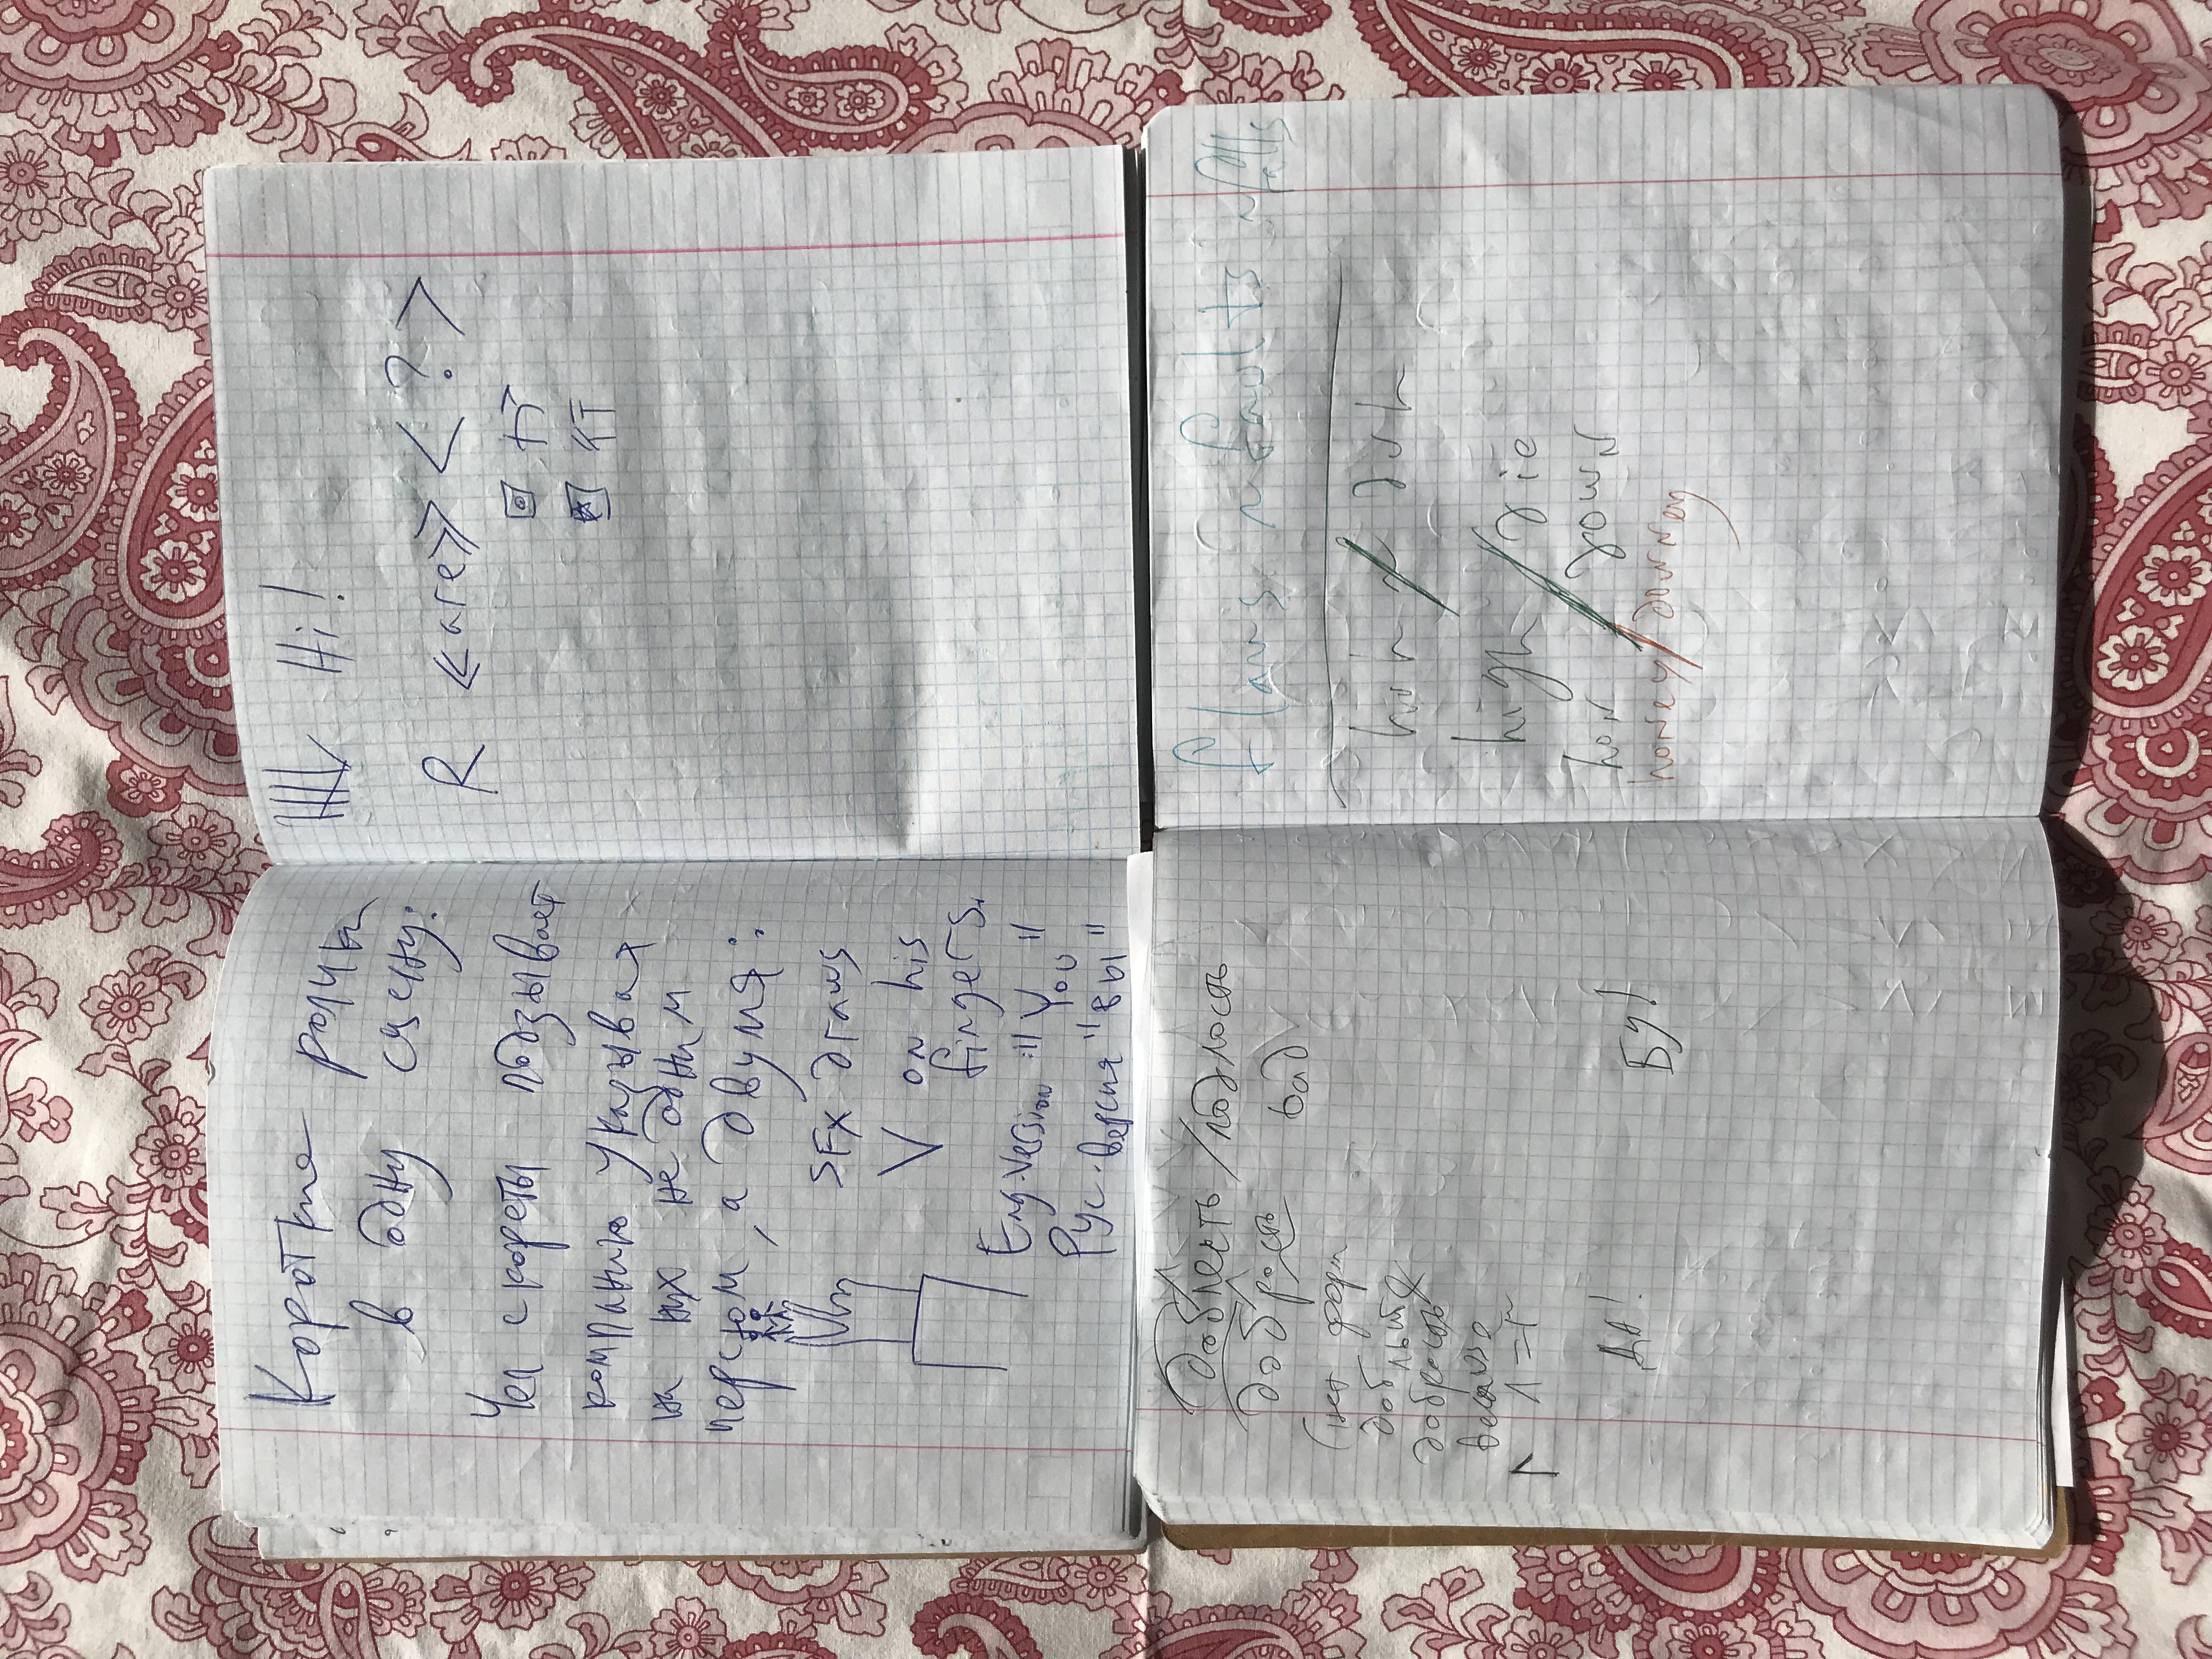 Короткие ролики
в одну сцену:
Чел с кореты подзывает
компанию указывая
на них не одним
перстом, а двумя:
SFX draws
V on his
fingers.
Eng.version :"You"
Рус. версия "вы"
Hi!
R «are» < ? >
行
доблесть / подлость
добрость bad
(нет форм
добрость
because
л = r
ДА! БУ!
flaws ~ faults ~ falls
huh ~ duh
high / die
hon / down
honey / downey